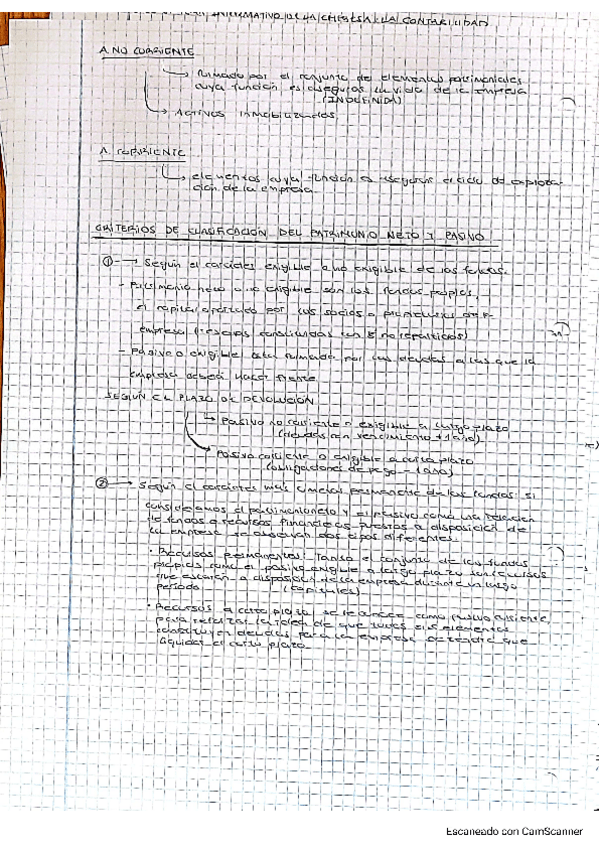 INFORMATIVO DE LA CIENCIA: LA CONTABILIDAD
A NO CORRIENTE
→ Formado por el conjunto de elementos patrimoniales
cuya función es asegurar la vida de la empresa
(INDEFINIDA)
→ Activos inmobilizados
A. CORRIENTE
→ elementos cuya función es asegurar el ciclo de explota-
ción de la empresa
CRITERIOS DE CLASIFICACIÓN DEL PATRIMONIO NETO Y PASIVO
① → Según el carácter exigible o no exigible de los fondos.
- Patrimonio neto o no exigible son los fondos propios,
el capital aportado por los socios o propietarios de
empresa (reservas constituidas con B no repartidos)
- Pasivo o exigible está formado por las deudas a las que la
empresa deberá hacer frente
SEGÚN EL PLAZO DE DEVOLUCIÓN
→ Pasivo no corriente o exigible a largo plazo
(deudas con vencimiento +1 año)
→ Pasivo corriente o exigible a corto plazo
(obligaciones de pago - 1 año)
② → Según el carácter más o menos permanente de los fondos: si
consideramos el patrimonio neto y el pasivo como una relación
de fondos o recursos financieros puestos a disposición de
la empresa se observan dos tipos diferentes.
• Recursos permanentes: Tanto el conjunto de los fondos
propios como el pasivo exigible a largo plazo son recursos
que estarán a disposición de la empresa durante un largo
periodo (capitales)
• Recursos a corto plazo: se le conoce como pasivo corriente,
para reforzar la idea de que todos los elementos
constituyen deudas para la empresa tendrá que
liquidar el corto plazo.
Escaneado con CamScanner